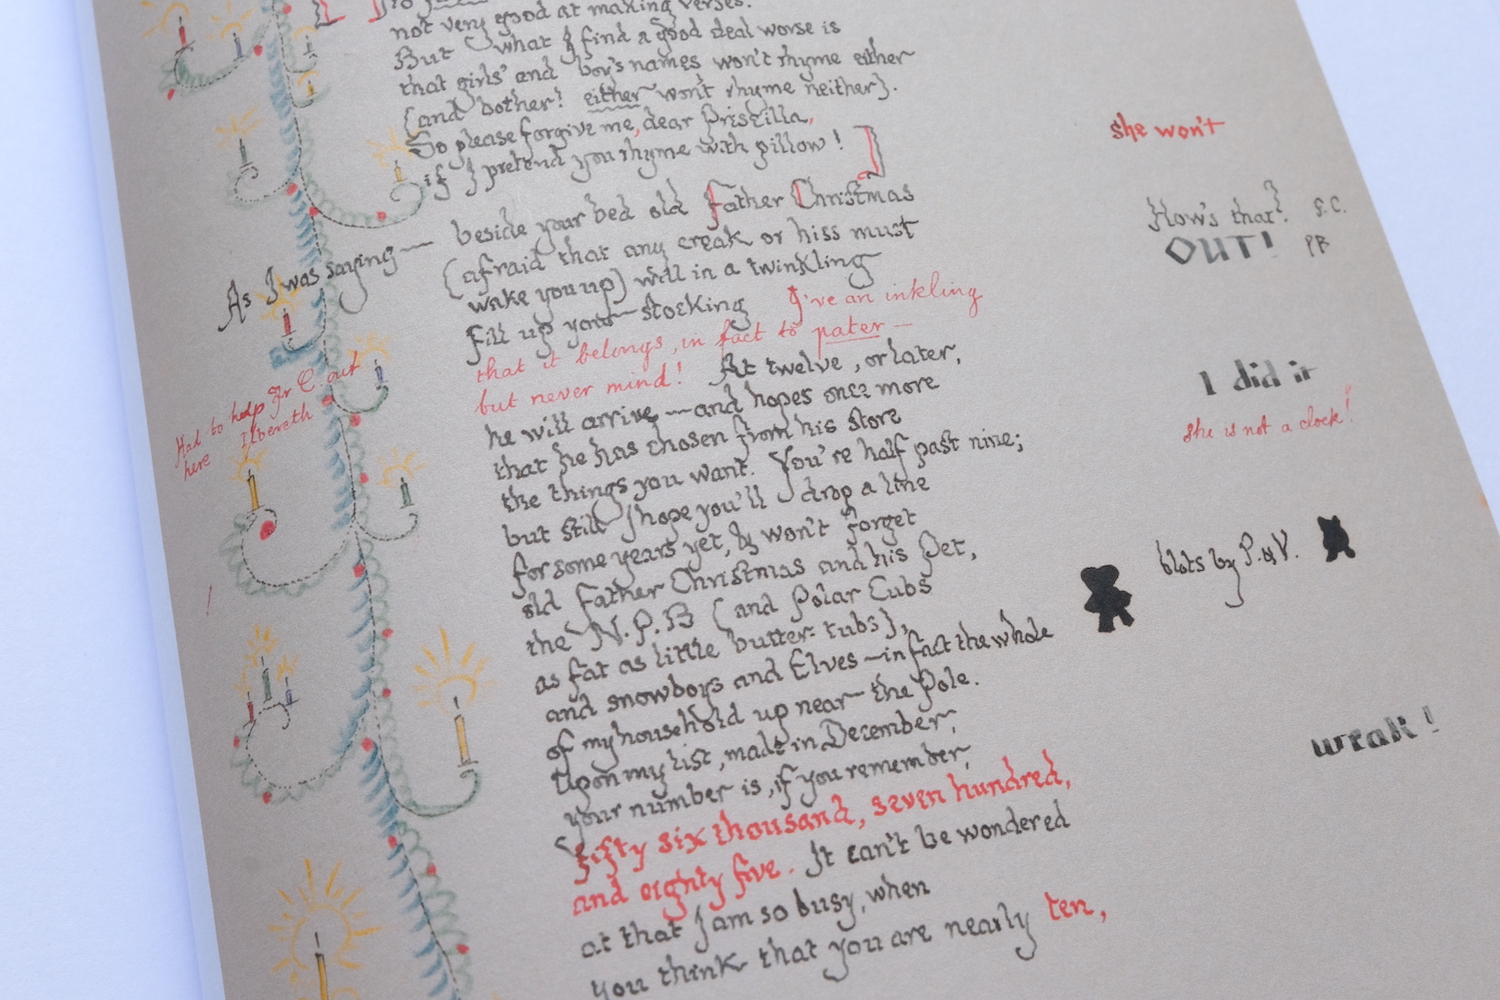 not very good at making verses.
But what I find a good deal worse is
that girls' and boy's names won't rhyme either
(and bother! either won't rhyme neither).
So please forgive me, dear Priscilla,
if I pretend you rhyme with pillow!]
she won't
As I was saying—
beside your bed old Father Christmas
(afraid that any creak or hiss must
wake you up) will in a twinkling
fill up your stocking I've an inkling
that it belongs, in fact to pater—
but never mind! At twelve, or later,
he will arrive—and hopes once more
that he has chosen from his store
the things you want. You're half past nine;
but still I hope you'll drop a line
for some years yet, & won't forget
old Father Christmas and his Pet,
the N.P.B (and Polar Cubs
as fat as little butter-tubs),
and snowboys and Elves—in fact the whole
of my household up near the Pole.
Upon my list, made in December,
your number is, if you remember,
fifty six thousand, seven hundred,
and eighty five. It can't be wondered
at that I am so busy, when
you think that you are nearly ten,
How's that? F.C.
OUT! PB
Had to help Fr C out
here Ilbereth
I did it
she is not a clock!
blots by P. & V.
weak!